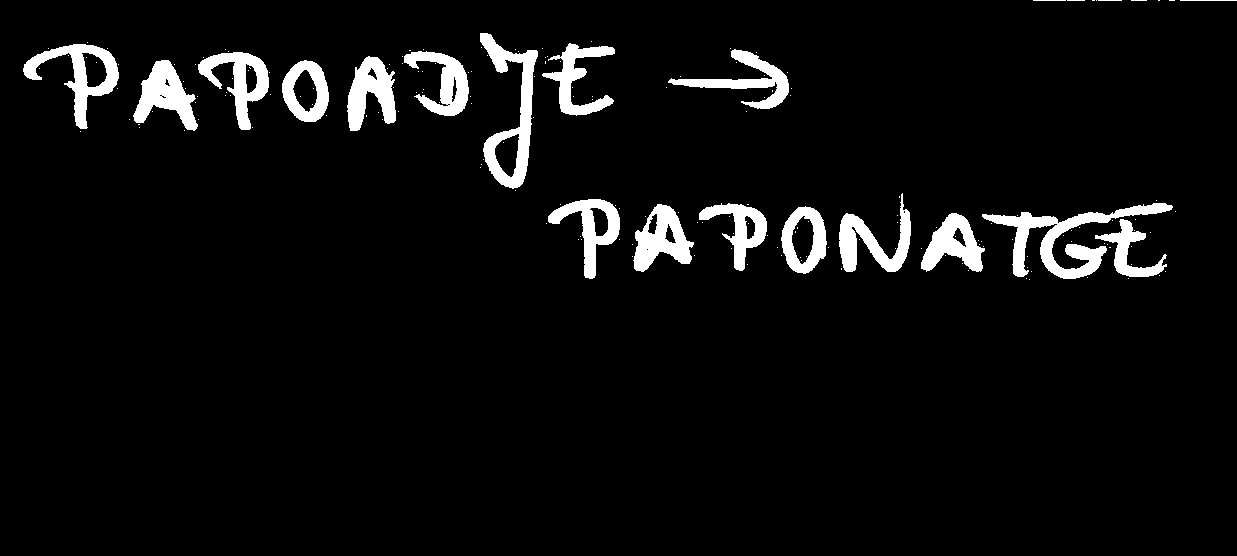 PAPOADJE →
PAPONATGE